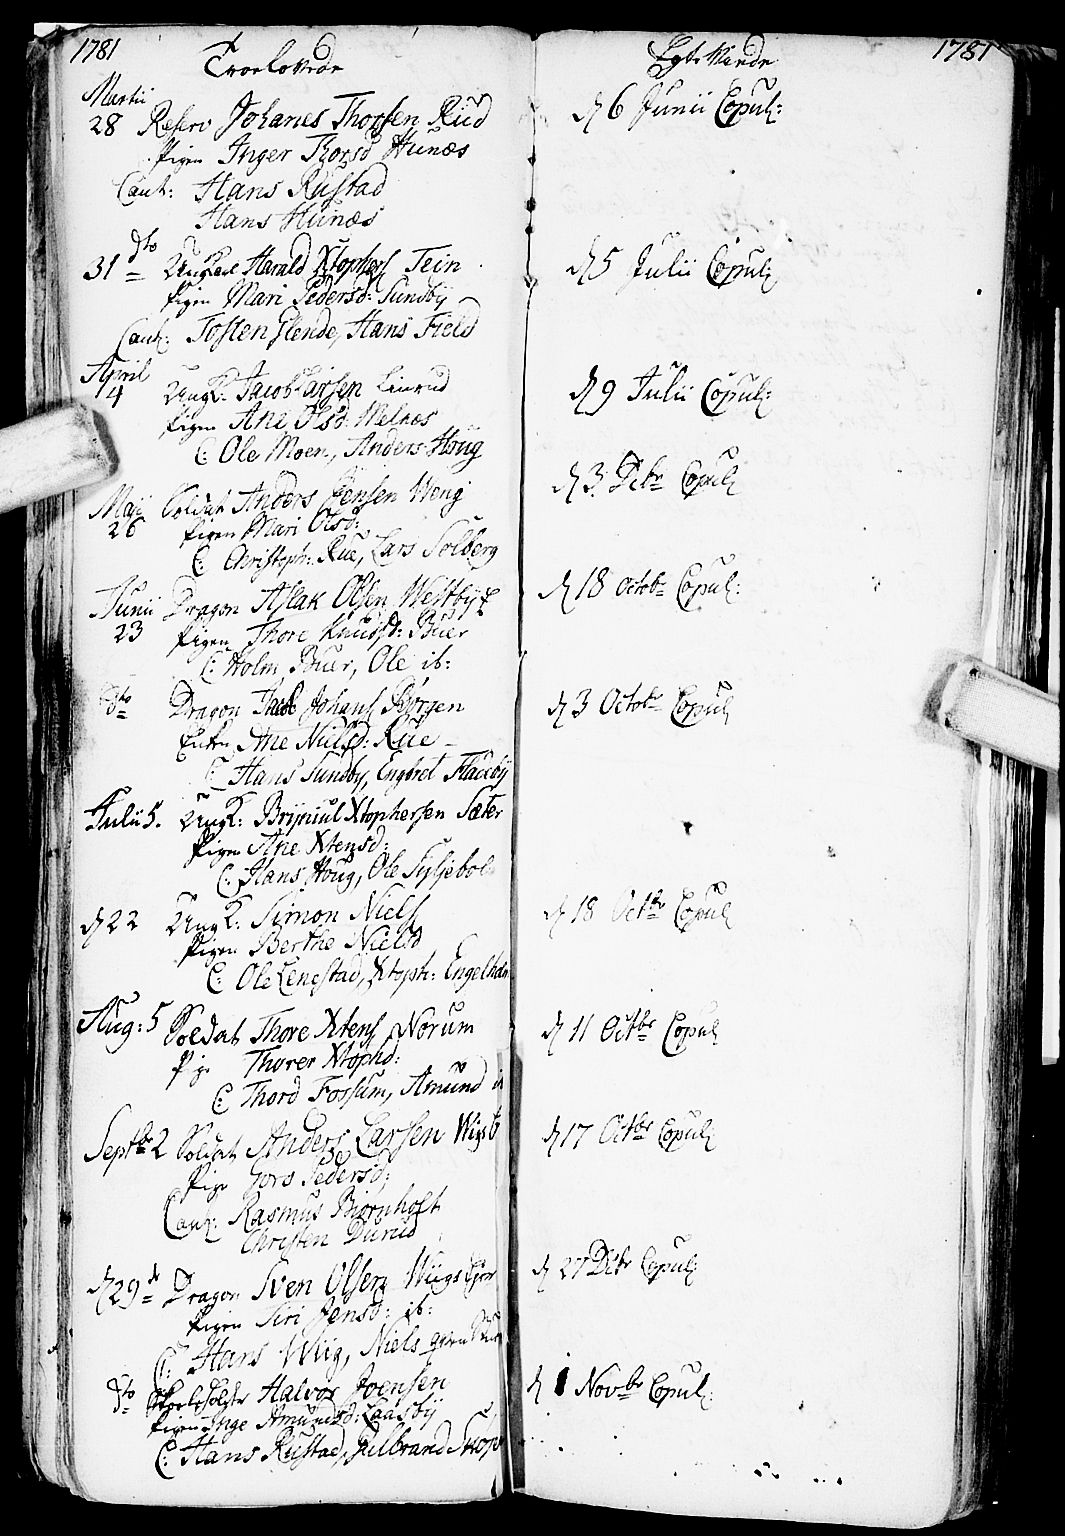 1781
Troelovede
Martii
28 Reserv Johanes Thorsen Rud
Pigen Inger Thorsd Hunæs
Caut: Hans Rustad
Hans Hunæs
31 dto UngKarl Harald Xtophers Tein
Pigen Mari Pedersd: Sundby
Caut: Tosten Glende, Hans Field
April
14 UngK: Jacob Larsen Linrud
Pigen Ane Olsd: Melnæs
C: Ole Moen, Anders Houg
Maji Soldat Anders Jensen Weng
26 Pigen Mari Olsd:
C: Christoph: Rue, Lars Solberg
Junii Dragon Aslak Olsen Westby
23 Pigen Thore Knudsd: Buer
C: Holm Buer, Ole ib:
dto Dragon Johans
Enken Ane Nielsd: Rue
C: Hans Sundby, Engbret Flaceby
Julii 5. UngK: Bryniul Xtophersen Sæter
Pigen Ane Xtensd:
C: Hans Houg, Ole
d 22 UngK: Simon Niels
Pigen Berthe Nielsd
C: Ole Lenestad, Xtoph: Engelh
Aug: 5 Soldat Thore Xtens Norum
Pige Thorer Xtophd:
C: Thord Fossum, Amund i
Septbr 2 Soldat Anders Larsen Wigsb
Pige Goro Pedersd:
Caut: Rasmus Biørnholt
Christen Durud
d 29 Dragon Sven Olsen
Pigen Siri Jensd: ib:
C: Hans Wiig, Niels
dto Halvor Joensen
Pigen Inge Amundsd: Laasby
C: Hans Rustad, Gulbrand
Egte Viede
1781
d 6 Junii Copul:
d 5 Julii Copul:
d 9 Julii Copul:
d 3: Debr Copul:
d 18 Octobr Copul:
d 3 Octobr Copul:
d 18 Octbr Copul:
d 11 Octbr Copul
d 17 Octbr Copul:
d 27 Debr Copul:
d 1 Novbr Copul: